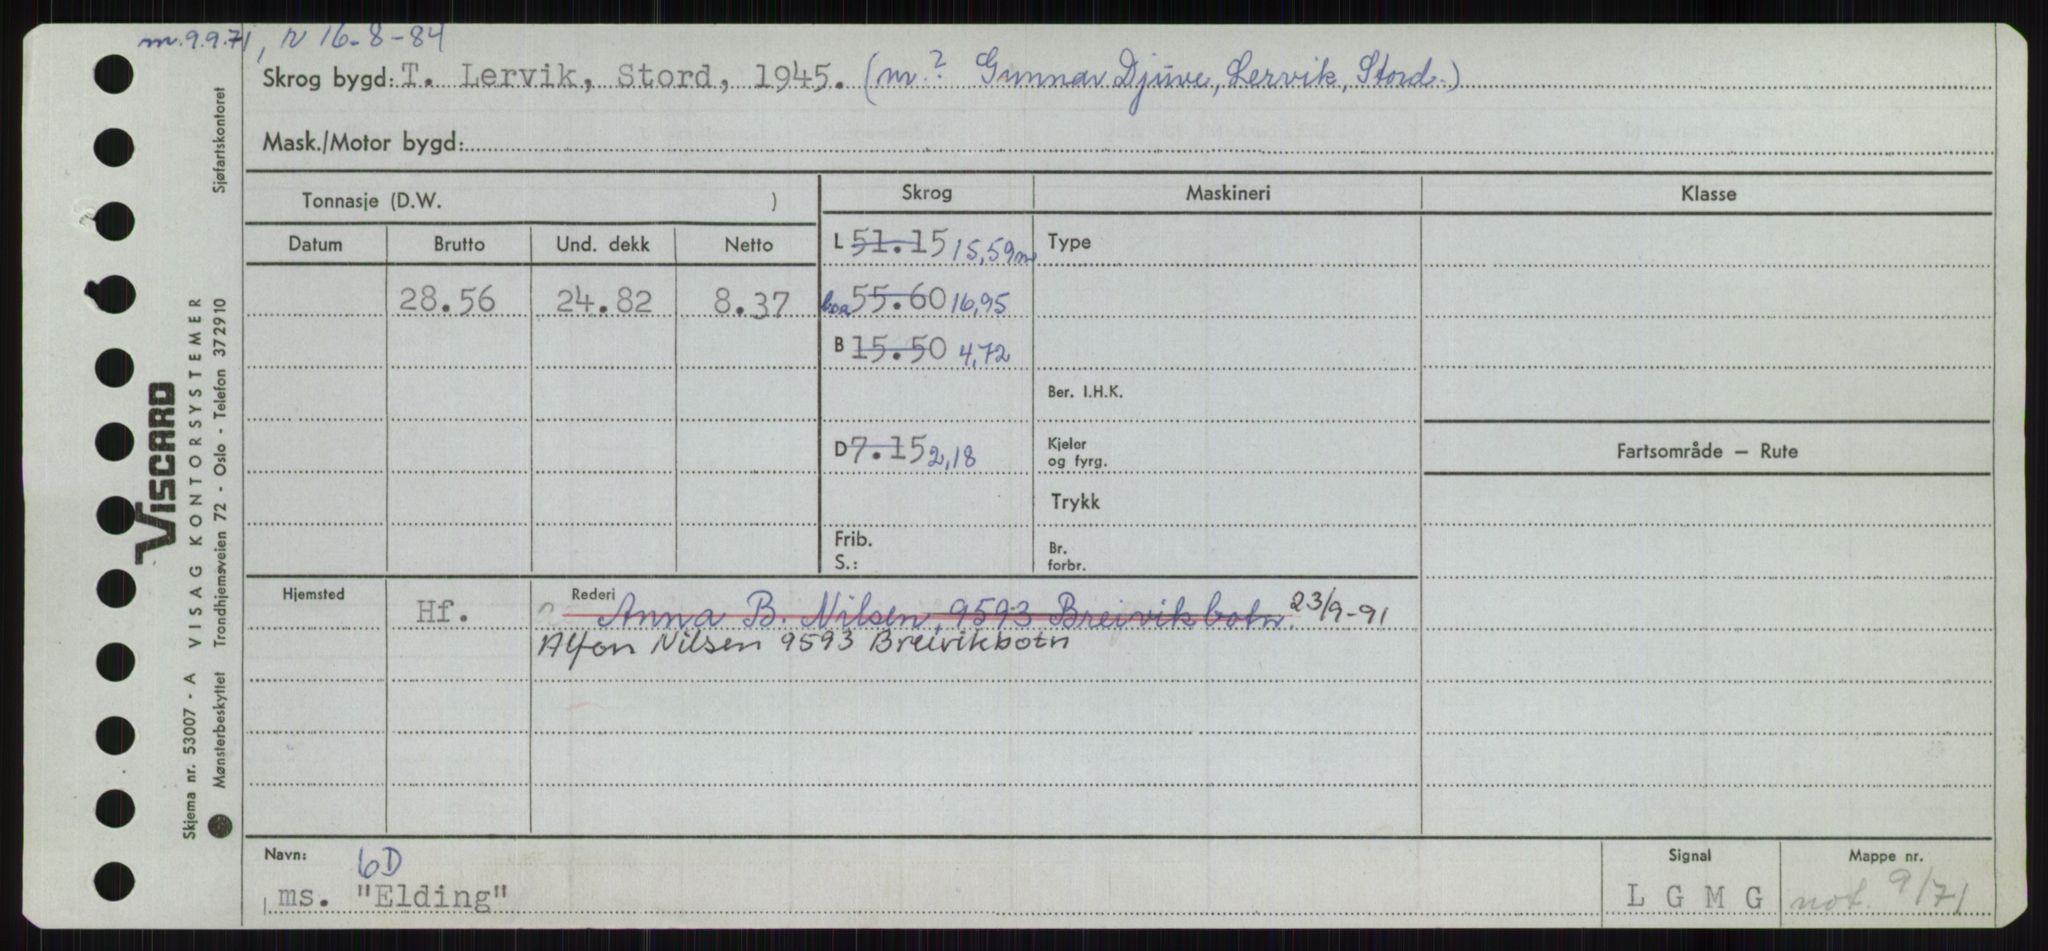 m.9.9.71, r 16-8-84
Skrog bygd: T. Lervik, Stord, 1945. (m? Gunnar Djuve, Lervik, Stord.)
Mask./Motor bygd:
Tonnasje (D.W. )
Skrog
Maskineri
Klasse
Datum
Brutto
Und. dekk
Netto
28.56
24.82
8.37
L 51.15 15,59m
55.60 16,95
B 15.50 4,72
D 7.15 2,18
Frib.
S.:
Type
Ber. I.H.K.
Kjeler
og fyrg.
Trykk
Br.
forbr.
Fartsområde — Rute
Hjemsted
Hf.
Rederi
Anna B. Nilsen, 9593 Breivikbotn. 23/9-91
Alfon Nilsen 9593 Breivikbotn
Navn:
6D
ms. "Elding"
Signal
L G M G
Mappe nr.
not. 9/71
VISCARD
Skjema nr. 53007 - A VISAG KONTORSYSTEMER
Mønsterbeskyttet Trondhjemsveien 72 - Oslo - Telefon 372910 Sjøfartskontoret